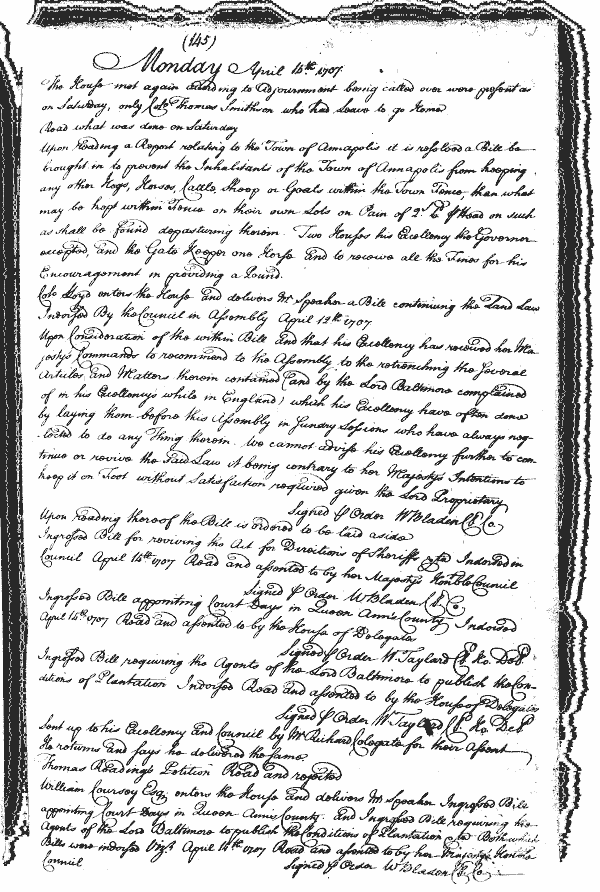 (145)
Monday April 14th 1707
The House met again according to Adjournment being called over were present as
on Saturday, only Colo Thomas Smithson who had Leave to go Home
Read what was done on Saturday
Upon reading a Report relating to the Town of Annapolis it is resolved a Bill be
brought in to prevent the Inhabitants of the Town of Annapolis from keeping
any other Hogs, Horses, Cattle, Sheep or Goats within the Town Fence than what
may be kept within Fence on their own Lots on Pain of 2s 6d ⅌ Head on such
as shall be found depasturing therein. Two Horses his Excellency the Governor
excepted, and the Gate Keeper one Horse and to receive all the Fines for his
Encouragement in providing a Pound.
Colo Lloyd enters the House and delivers Mr Speaker a Bill continuing the Land Law
Indorsed By the Council in Assembly April 12th 1707
Upon Consideration of the within Bill and that his Excellency has received her Ma-
jestys Commands to recommend to the Assembly to the retrenching the several
Articles and Matters therein contained (and by the Lord Baltimore complained
of in his Excellencys while in England) which his Excellency have often done
by laying them before this Assembly in sundry Sessions who have always neg-
lected to do any Thing therein. We cannot advise his Excellency further to con-
tinue or revive the said Law it being contrary to her Majestys Intentions to
keep it on Foot without Satisfaction required given the Lord Proprietary
Signed ⅌ Order W Bladen Cl Co.
Upon reading thereof the Bill is ordered to be laid aside
Ingrossed Bill for reviving the Act for Directions of Sheriffs &ca Indorsed in
Council April 14th 1707 Read and assented to by her Majestys Honble Council
Signed ⅌ Order W Bladen Cl Co.
Ingrossed Bill appointing Court Days in Queen Anns County Indorsed
April 14th 1707 Read and assented to by the House of Delegates
Signed ⅌ Order W Taylard Cl Ho. Del
Ingrossed Bill requiring the Agents of the Lord Baltimore to publish the Con-
ditions of Plantation Indorsed Read and assented to by the House of Delegates
Signed ⅌ Order W Taylard Cl Ho. Del
Sent up to his Excellency and Council by Mr Richard Colegate for their Assent
He returns and says he delivered the same.
Thomas Readings Petition Read and rejected
William Coursey Esqr enters the House and delivers Mr Speaker Ingrossed Bill
appointing Court Days in Queen Anns County. And Ingrossed Bill requiring the
Agents of the Lord Baltimore to publish the Conditions of Plantation &ca Both which
Bills were indorsed Vizt April 14th 1707 Read and assented to by her Majestys Honble
Council Signed ⅌ Order W Bladen Cl Co.